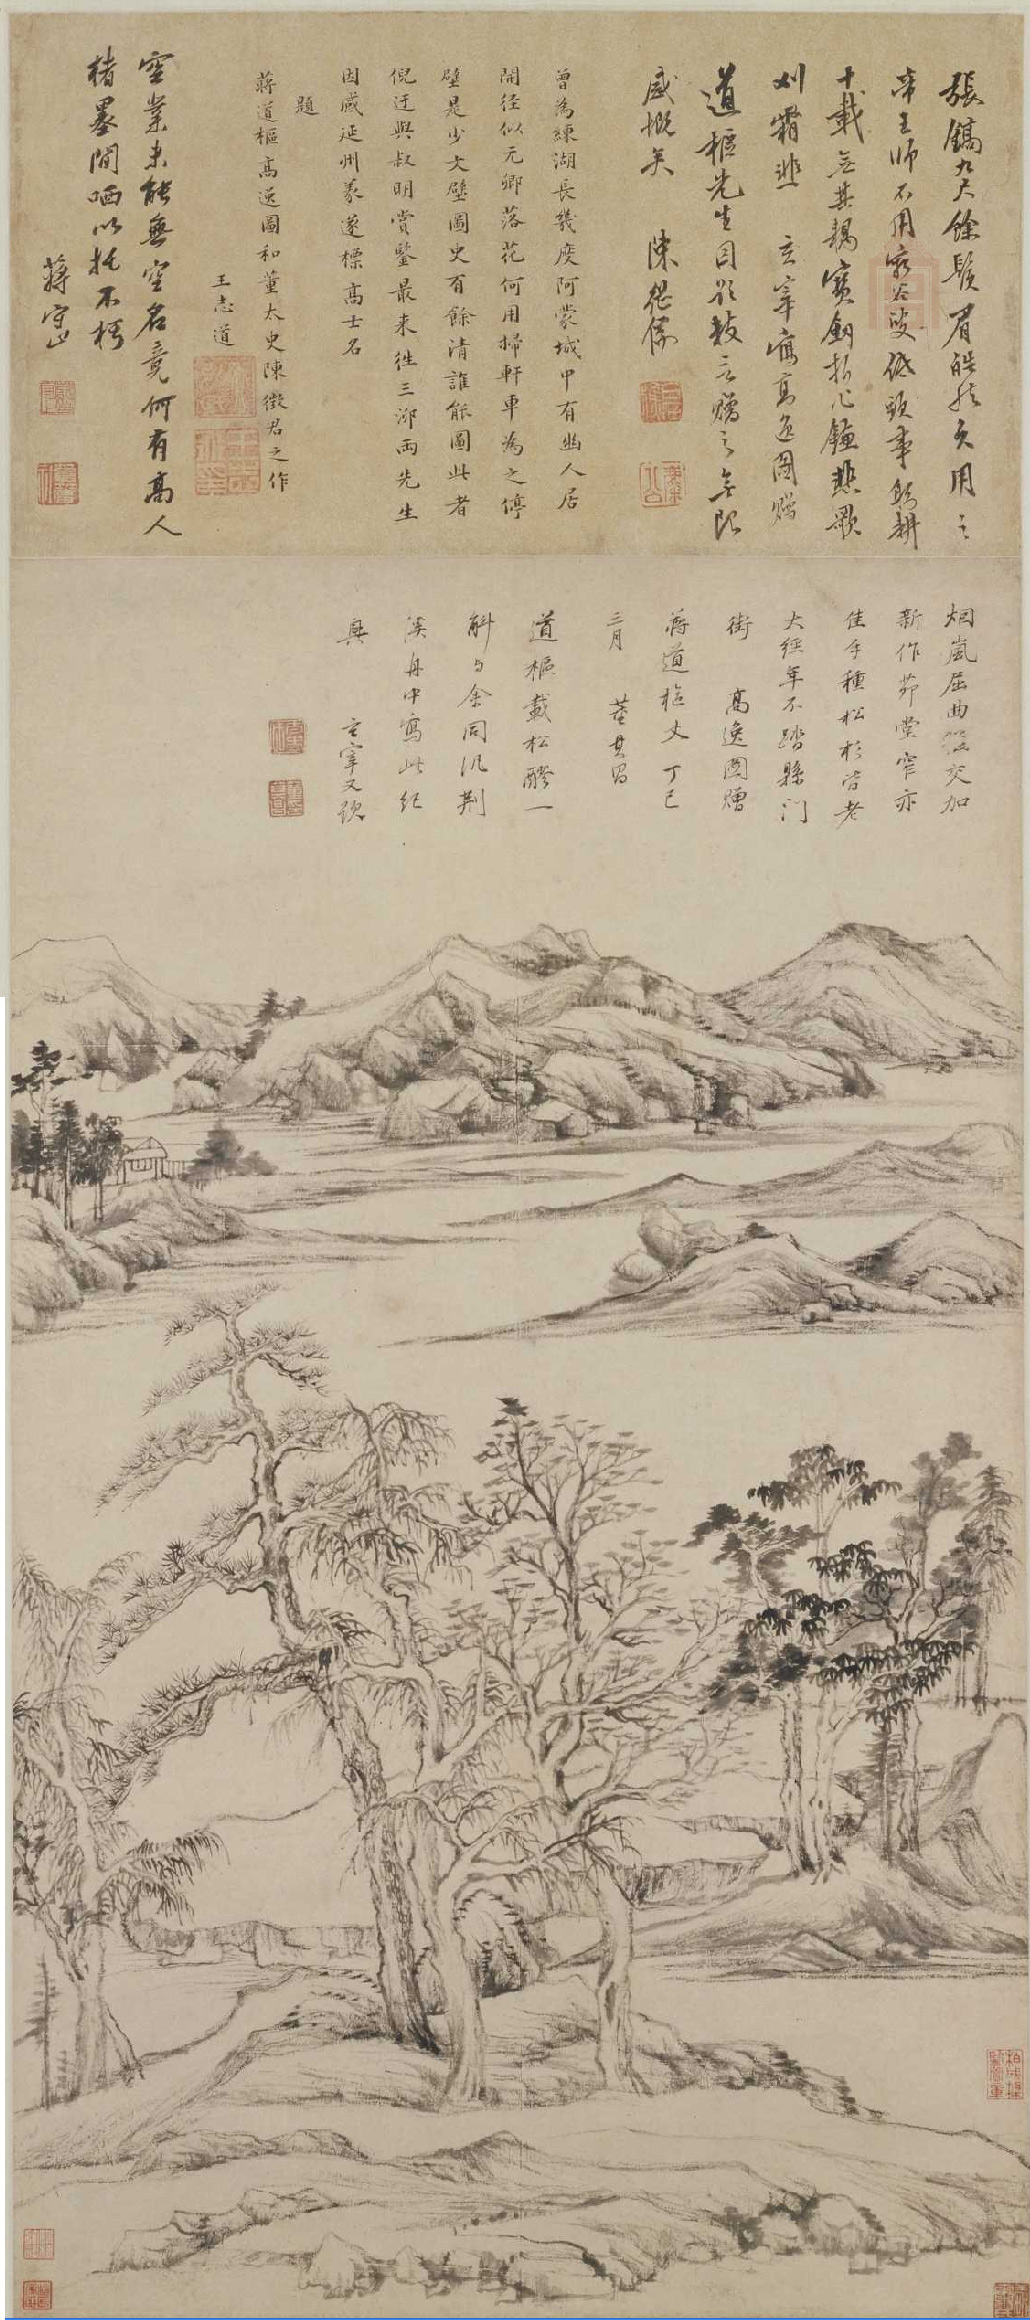 張鎬九尺餘鬚眉皓然用之
帝王師不用窮谷叟低頭事躬耕
十載無其耦寶劍折鐮悲歌
刈霜韭 玄宰寫高逸圖贈
道樞先生因題數言贈之無限
感慨矣 陳繼儒
曾為練湖長幾度阿蒙城中有幽人居
開徑似元卿落花何用掃軒車為之停
壁是少文壁圖史有餘清誰能圖此者
倪迂與叔明賞鑒最来往三泖兩先生
因感延州篆遂標高士名
題
蔣道樞高逸圖和董太史陳徵君之作
王志道
空業未能無空名竟何有高人
楮墨間哂以托不朽
蔣守止
烟嵐屈曲交加
新作茆堂窄亦
佳手種松杉皆老
大經年不踏縣門
街 高逸圖贈
蔣道樞丈 丁巳
三月 董其昌
道樞載松醪一
斛與余同汎荆
溪舟中寫此紀
興 玄宰又題